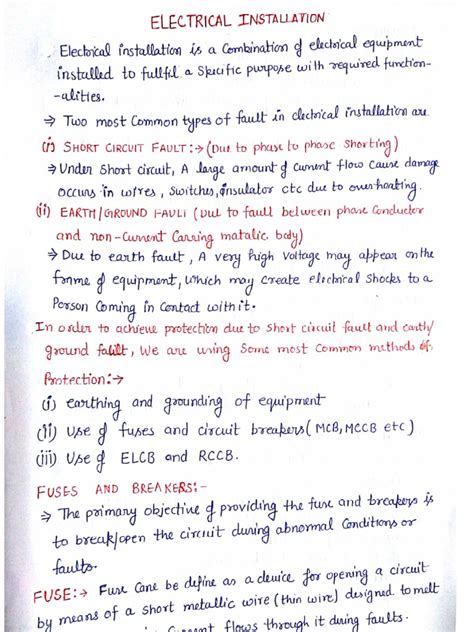 ELECTRICAL INSTALLATION
Electrical installation is a Combination of electrical equipment
installed to fullfil a Specific purpose with required function-
-alities.
⇒ Two most Common types of fault in electrical installation are
(i) SHORT CIRCUIT FAULT:→ (Due to phase to phase Shorting)
⇒ Under Short circuit, A large amount of current flow cause damage
occurs in wires, switches, insulator etc due to overheating.
(ii) EARTH/GROUND FAULT (Due to fault between phase Conductor
and non-Current Carring matalic body)
⇒ Due to earth fault, A very high Voltage may appear on the
frame of equipment, which may create electrical Shocks to a
Person Coming in Contact with it.
In order to achieve protection due to Short circuit fault and earth/
ground fault, We are using Some most Common methods of
Protection:→
(i) earthing and grounding of equipment
(ii) Use of fuses and circuit breakers (MCB, MCCB etc)
(iii) Use of ELCB and RCCB.
FUSES AND BREAKERS:-
⇒ The primary objective of providing the fuse and breakers is
to break/open the circuit during abnormal Conditions or
faults.
FUSE:→ Fuse Cane be define as a device for opening a circuit
by means of a Short metallic wire (thin wire) designed to melt
Current flows through it during faults.